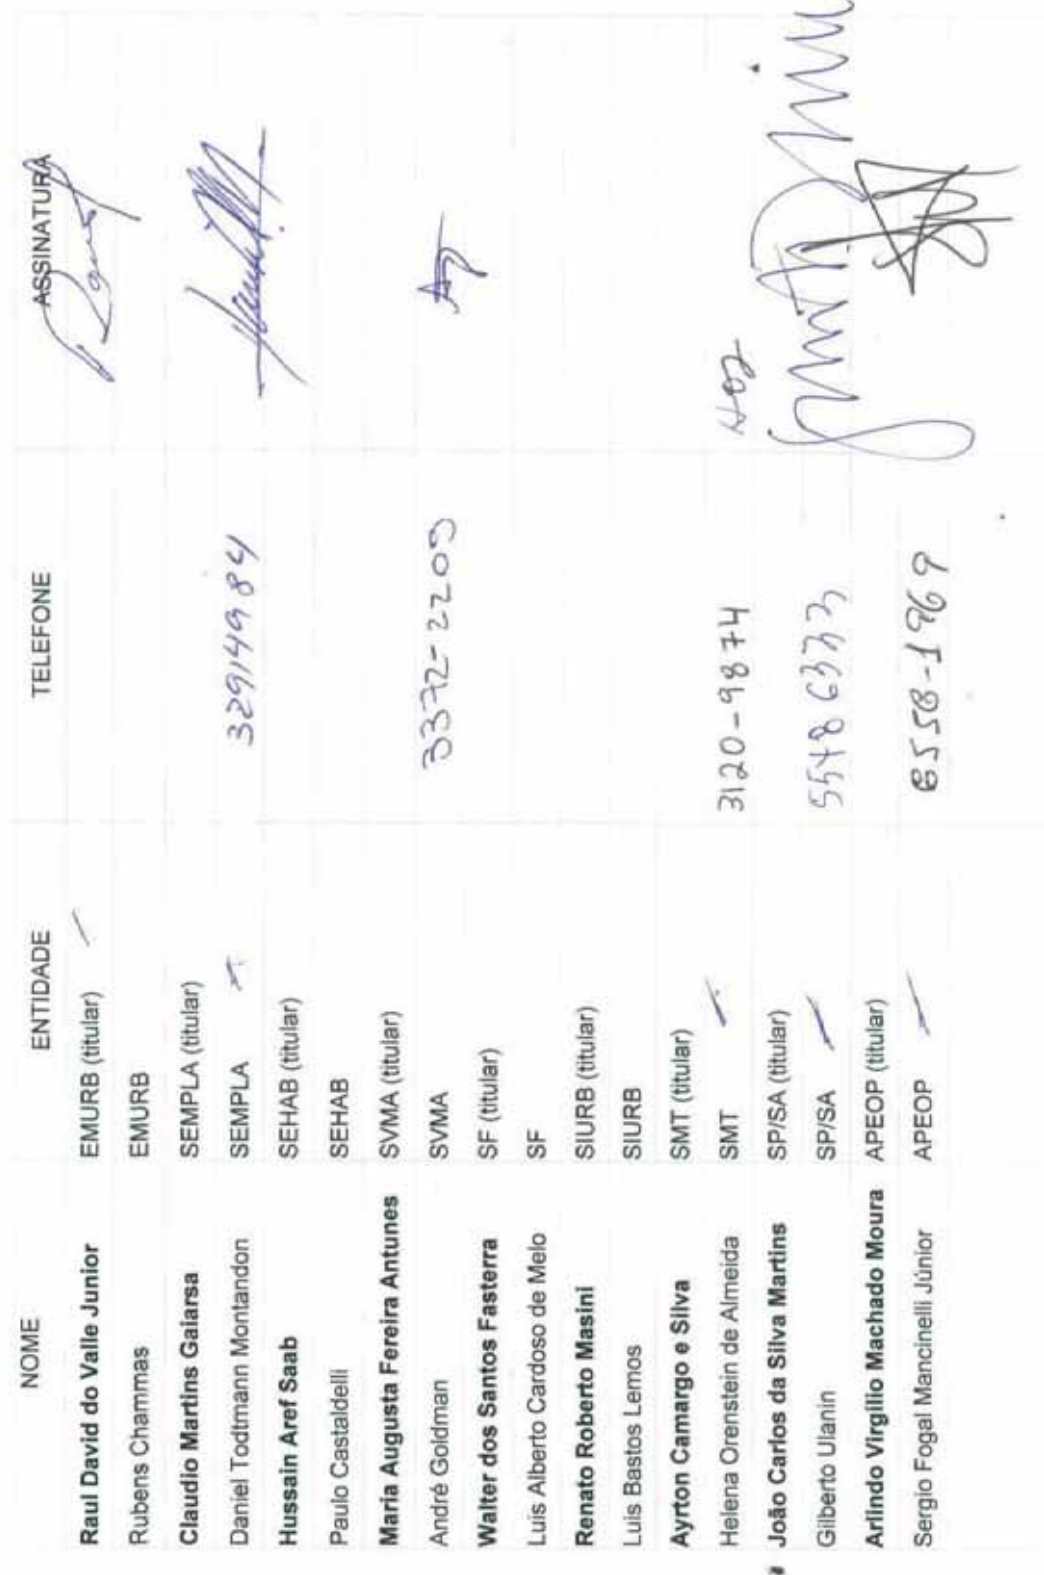 NOME ENTIDADE TELEFONE ASSINATURA
Raul David do Valle Junior EMURB (titular)
Rubens Chammas EMURB
Claudio Martins Gaiarsa SEMPLA (titular)
Daniel Todtmann Montandon SEMPLA 32914984
Hussain Aref Saab SEHAB (titular)
Paulo Castaldelli SEHAB
Maria Augusta Fereira Antunes SVMA (titular)
André Goldman SVMA 3372-2209
Walter dos Santos Fasterra SF (titular)
Luis Alberto Cardoso de Melo SF
Renato Roberto Masini SIURB (titular)
Luis Bastos Lemos SIURB
Ayrton Camargo e Silva SMT (titular)
Helena Orenstein de Almeida SMT 3120-9874
João Carlos da Silva Martins SP/SA (titular)
Gilberto Ulanin SP/SA 55486333
Arlindo Virgilio Machado Moura APEOP (titular)
Sergio Fogal Mancinelli Júnior APEOP 8558-1969